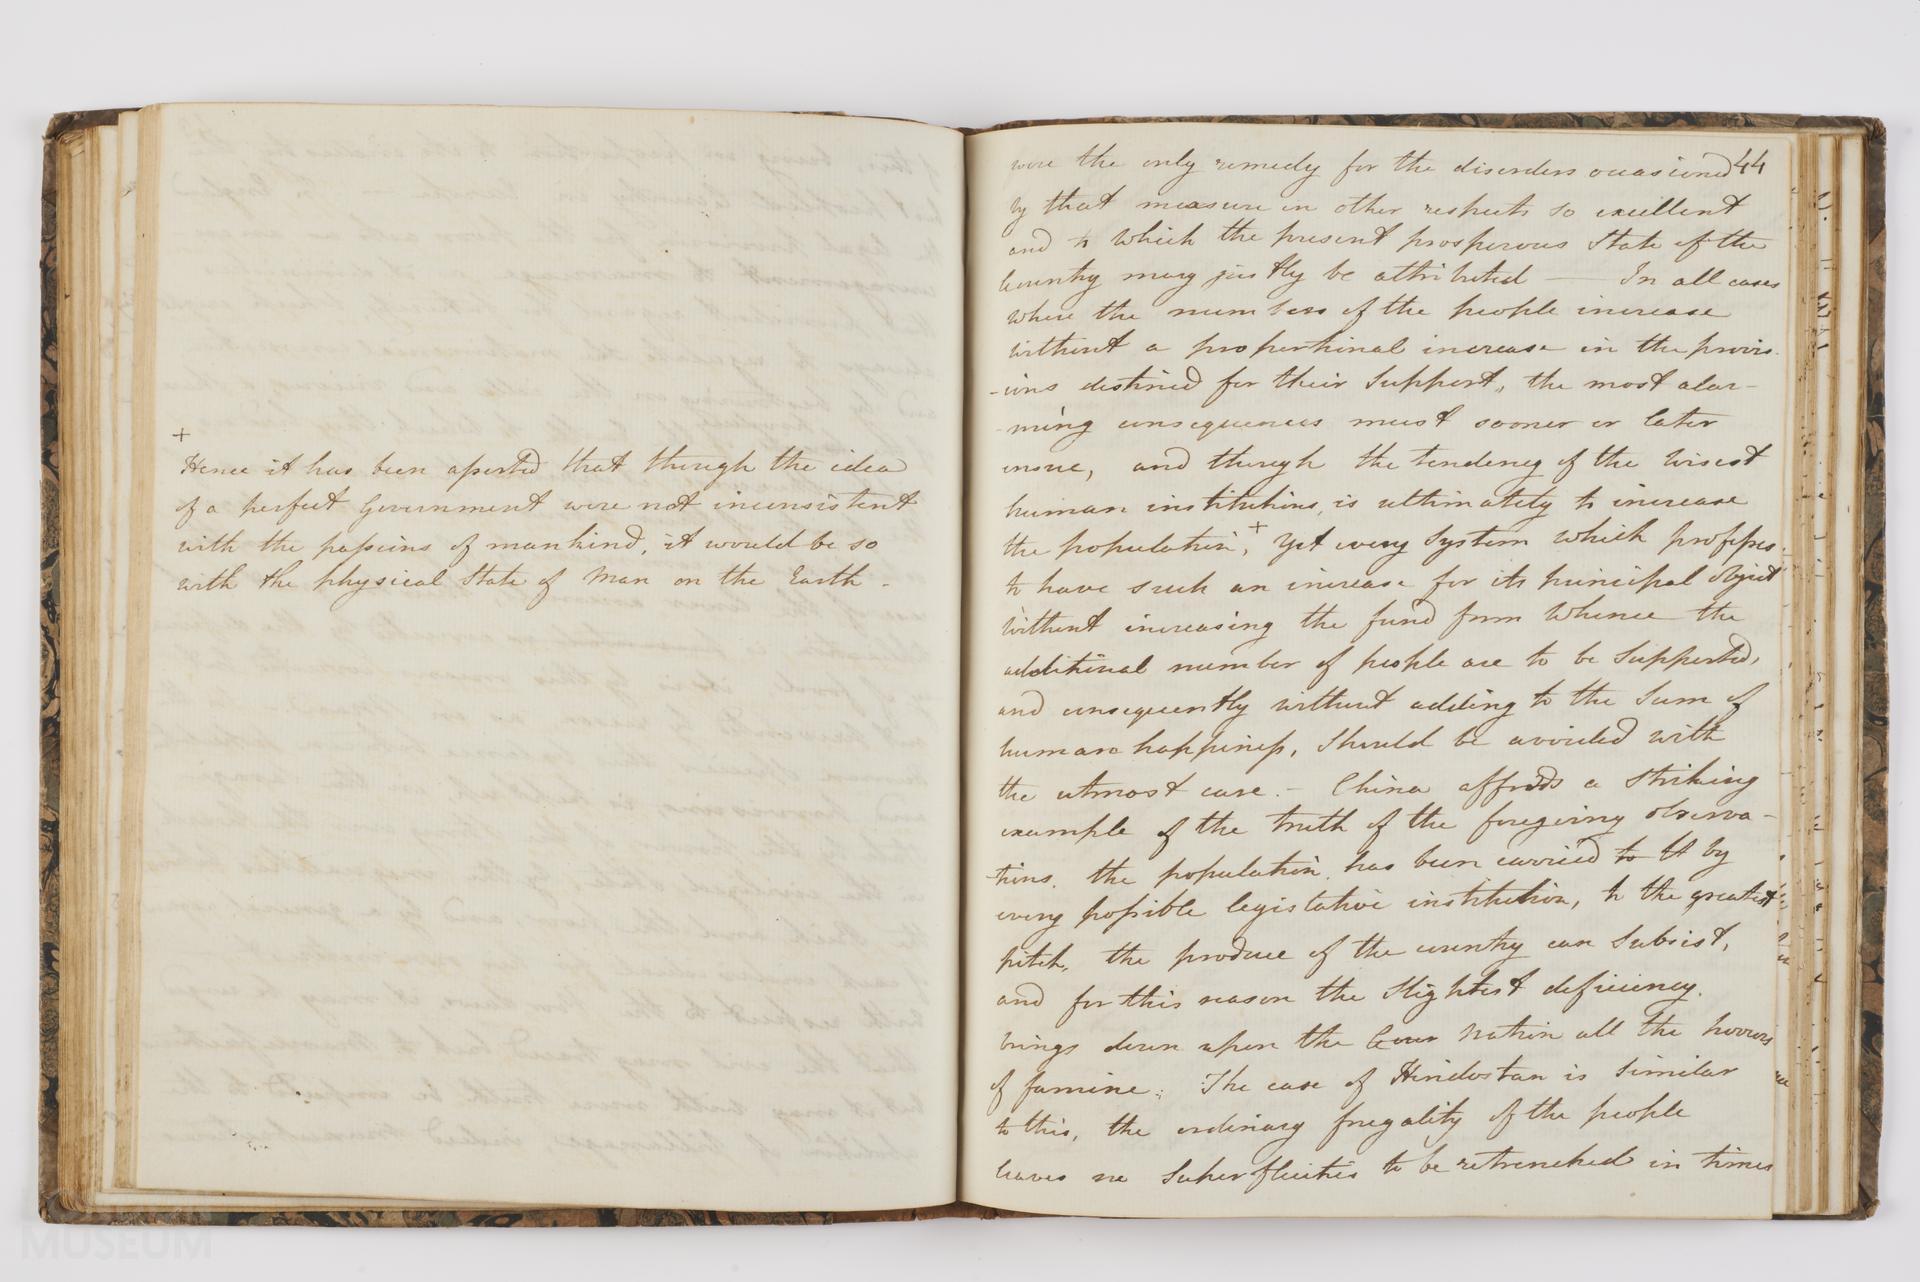 +
Hence it has been asserted that though the idea
of a perfect Government were not inconsistent
with the passions of mankind, it would be so
with the physical State of Man on the Earth -
were the only remedy for the disorders occasioned 44
by that measure in other respects so excellent
and to which the present prosperous State of the
Country may justly be attributed — In all cases
where the numbers of the people increase
without a proportional increase in the provis-
-ions destined for their Support, the most alar-
-ming consequences must sooner or later
ensue, and though the tendency of the wisest
human institutions, is ultimately to increase
the population,+ Yet every System which professes
to have such an increase for its principal object
without increasing the fund from whence the
additional number of people are to be Supported,
and consequently without adding to the Sum of
human happiness, Should be avoided with
the utmost care. - China affords a Striking
example of the truth of the foregoing observa-
-tions. the population has been carried to it by
every possible legislative institution, to the greatest
pitch, the produce of the country can Subsist,
and for this reason the Slightest deficiency.
brings down upon the Coun Nation all the horrors
of famine. The case of Hindostan is Similar
to this, the ordinary frugality of the people
leaves no Superfluities to be retrenched in times
MUSEUM